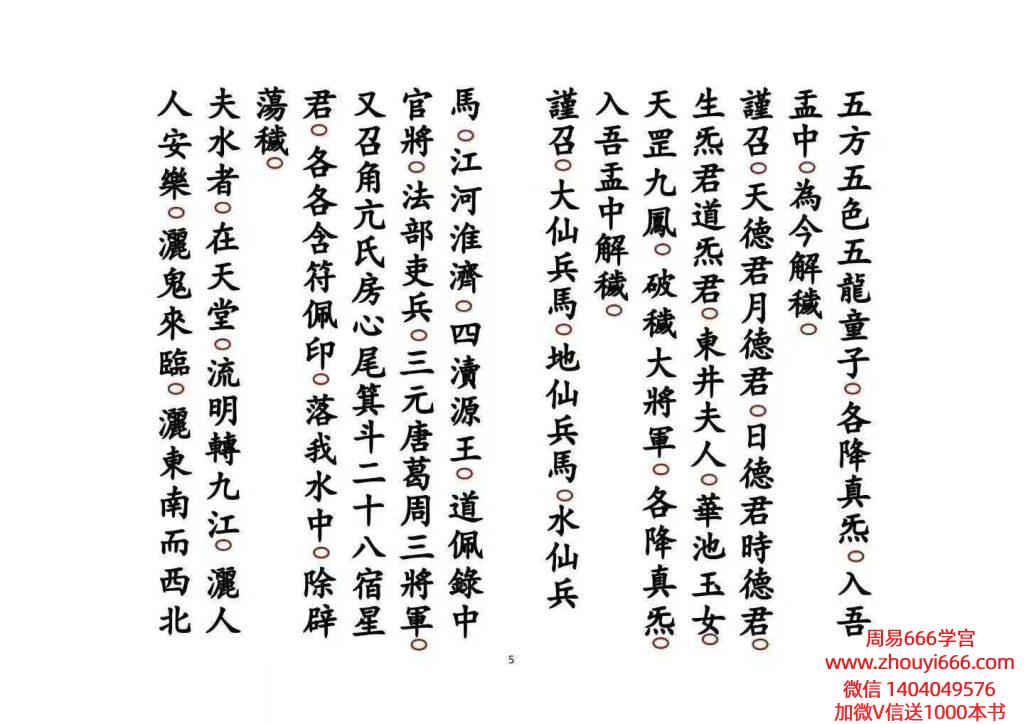 五方五色五龍童子○各降真炁○入吾
盂中○為今解穢○
謹召○天德君月德君○日德君時德君○
生炁君道炁君○東井夫人○華池玉女○
天罡九鳳○破穢大將軍○各降真炁○
入吾盂中解穢○
謹召○大仙兵馬○地仙兵馬○水仙兵
馬○江河淮濟○四瀆源王○道佩錄中
官將○法部吏兵○三元唐葛周三將軍○
又召角亢氏房心尾箕斗二十八宿星
君○各各含符佩印○落我水中○除辟
蕩穢○
夫水者○在天堂○流明轉九江○灑人
人安樂○灑鬼來臨○灑東南而西北
5
周易666学宫
www.zhouyi666.com
微信 1404049576
加微V信送1000本书